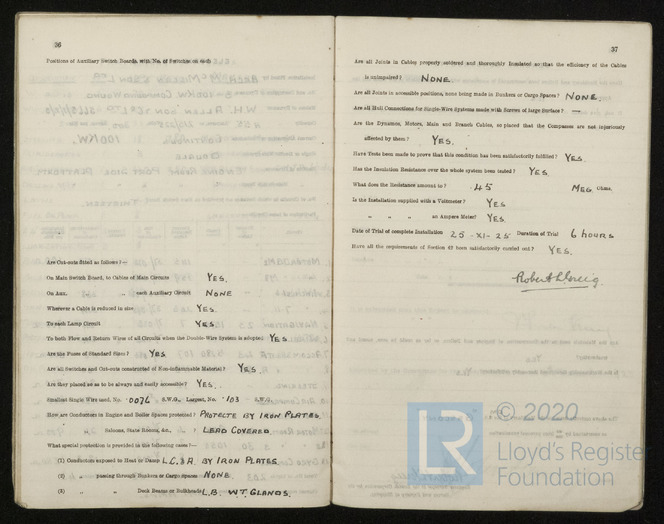 36
Positions of Auxiliary Switch Boards, with No. of Switches on each
Are Cut-outs fitted as follows:—
On Main Switch Board, to Cables of Main Circuits YES.
On Aux. „ „ each Auxiliary Circuit NONE
Wherever a Cable is reduced in size YES.
To each Lamp Circuit YES.
To both Flow and Return Wires of all Circuits when the Double-Wire System is adopted YES.
Are the Fuses of Standard Sizes? YES
Are all Switches and Cut-outs constructed of Non-inflammable Material? YES.
Are they placed so as to be always and easily accessible? YES.
Smallest Single Wire used, No. ·0076 S.W.G., Largest, No. ·103 S.W.G.
How are Conductors in Engine and Boiler Spaces protected? PROTECTE BY IRON PLATES
„ Saloons, State Rooms, &c., „ ? LEAD COVERED.
What special protection is provided in the following cases:—
(1) Conductors exposed to Heat or Damp L.C. & A. BY IRON PLATES
(2) „ passing through Bunkers or Cargo Spaces NONE
(3) „ „ Deck Beams or Bulkheads L.B. W.T. GLANDS.
37
Are all Joints in Cables properly soldered and thoroughly insulated so that the efficiency of the Cables
is unimpaired? NONE.
Are all Joints in accessible positions, none being made in Bunkers or Cargo Spaces? NONE.
Are all Hull Connections for Single-Wire Systems made with Screws of large Surface? —
Are the Dynamos, Motors, Main and Branch Cables, so placed that the Compasses are not injuriously
affected by them? YES.
Have Tests been made to prove that this condition has been satisfactorily fulfilled? YES.
Has the Insulation Resistance over the whole system been tested? YES.
What does the Resistance amount to? ·45 MEG Ohms.
Is the Installation supplied with a Voltmeter? YES
„ „ „ an Ampere Meter? YES.
Date of Trial of complete Installation 25-XI-25 Duration of Trial 6 hours
Have all the requirements of Section 42 been satisfactorily carried out? YES.
© 2020
LR
Lloyd's Register
Foundation